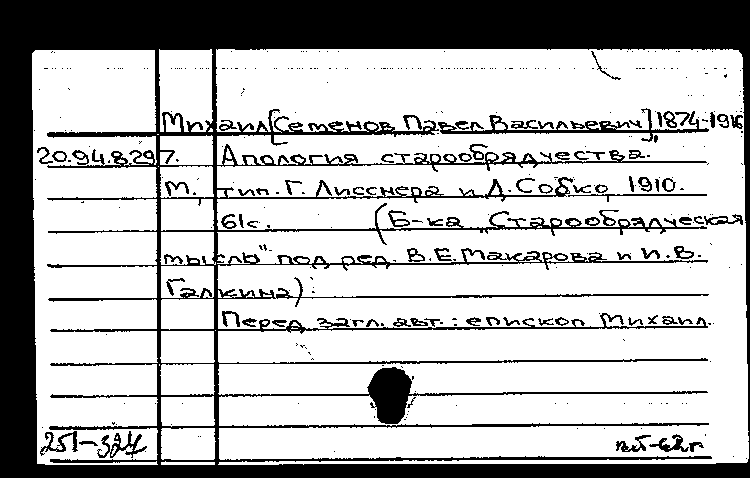 Михаил [Семенов, Павел Васильевич], 1874-1916
20.94.8.297. Апология старообрядчества.
М., тип. Г. Лисснера и Д. Собко, 1910.
61с. (Б-ка „Старообрядческая
мысль" под ред. В.Е. Макарова и И.В.
Галкина).
Перед загл. авт.: епископ Михаил.
251-324